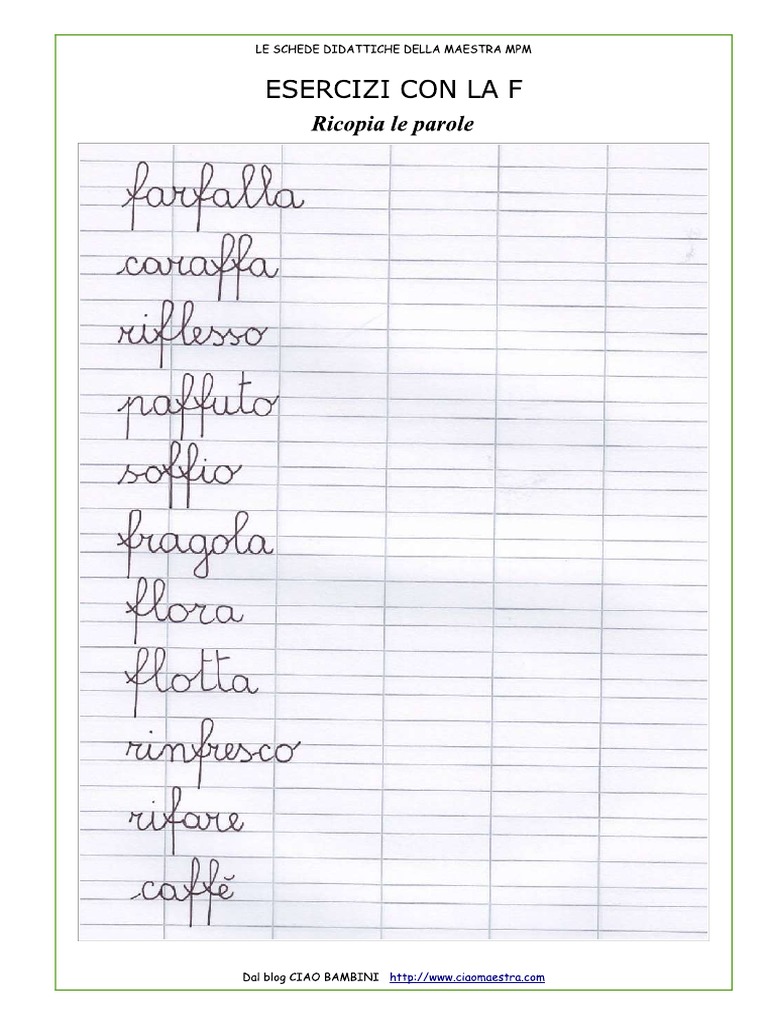 LE SCHEDE DIDATTICHE DELLA MAESTRA MPM
ESERCIZI CON LA F
Ricopia le parole
farfalla
caraffa
riflesso
paffuto
soffio
fragola
flora
flotta
rinfresco
rifare
caffè
Dal blog CIAO BAMBINI http://www.ciaomaestra.com